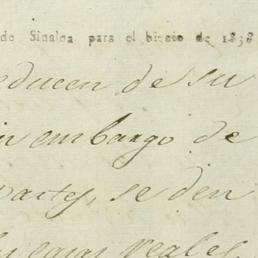 de Sinaloa para el bi to de 1838
educen de su
in embargo de
partes, se den
las cajas reales